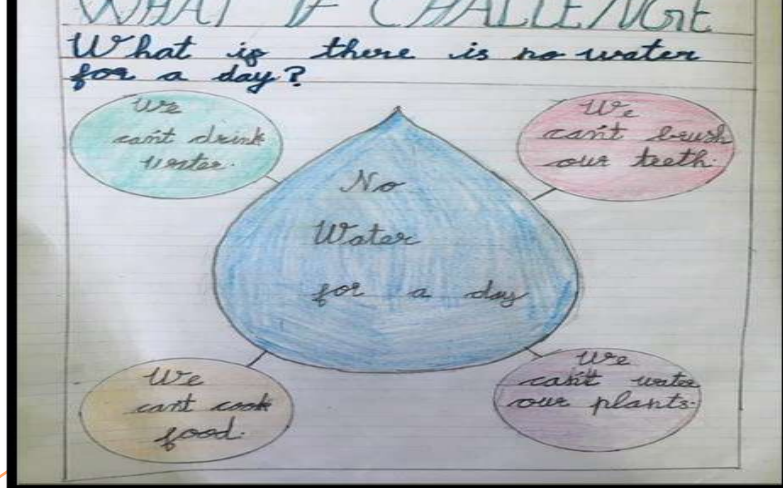 WHAT IF CHALLENGE
What if there is no water
for a day?
We
can't drink
water.
We
can't brush
our teeth.
No
Water
for a day
We
can't cook
food.
We
can't water
our plants.